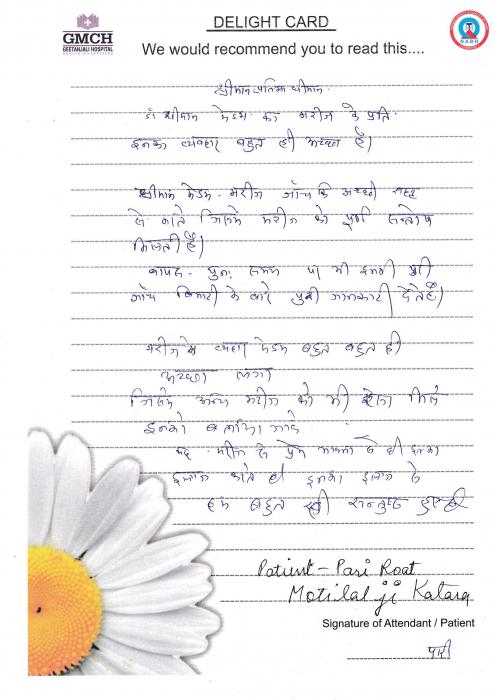 GMCH
GEETANJALI HOSPITAL
DELIGHT CARD
We would recommend you to read this....
NABH
श्रीमान
डॉ श्रीमान मेडम का मरीज के प्रति
इनका व्यवहार बहुत ही अच्छा है।
श्रीमान मेडम मरीज जाँच कि अच्छी तरह
से करते जिससे मरीज को पूर्ण सन्तोष
मिलती है।
वापस पुन समय पर भी इनकी पुरी
जाँच बिमारी के बारे पुरी जानकारी देते है।
मरीज से व्यवहार मेडम बहुत बहुत ही
अच्छा लगा
जिससे अन्य मरीज को भी सेवा मिले
इनको बताया जावे
यह मरीज से प्रेम भावना से ही इनका
इलाज करते है इनका इलाज से
हम बहुत ही सन्तुष्ट हुए है
Patient - Pari Roat
Motilal ji Katara
Signature of Attendant / Patient
पारी